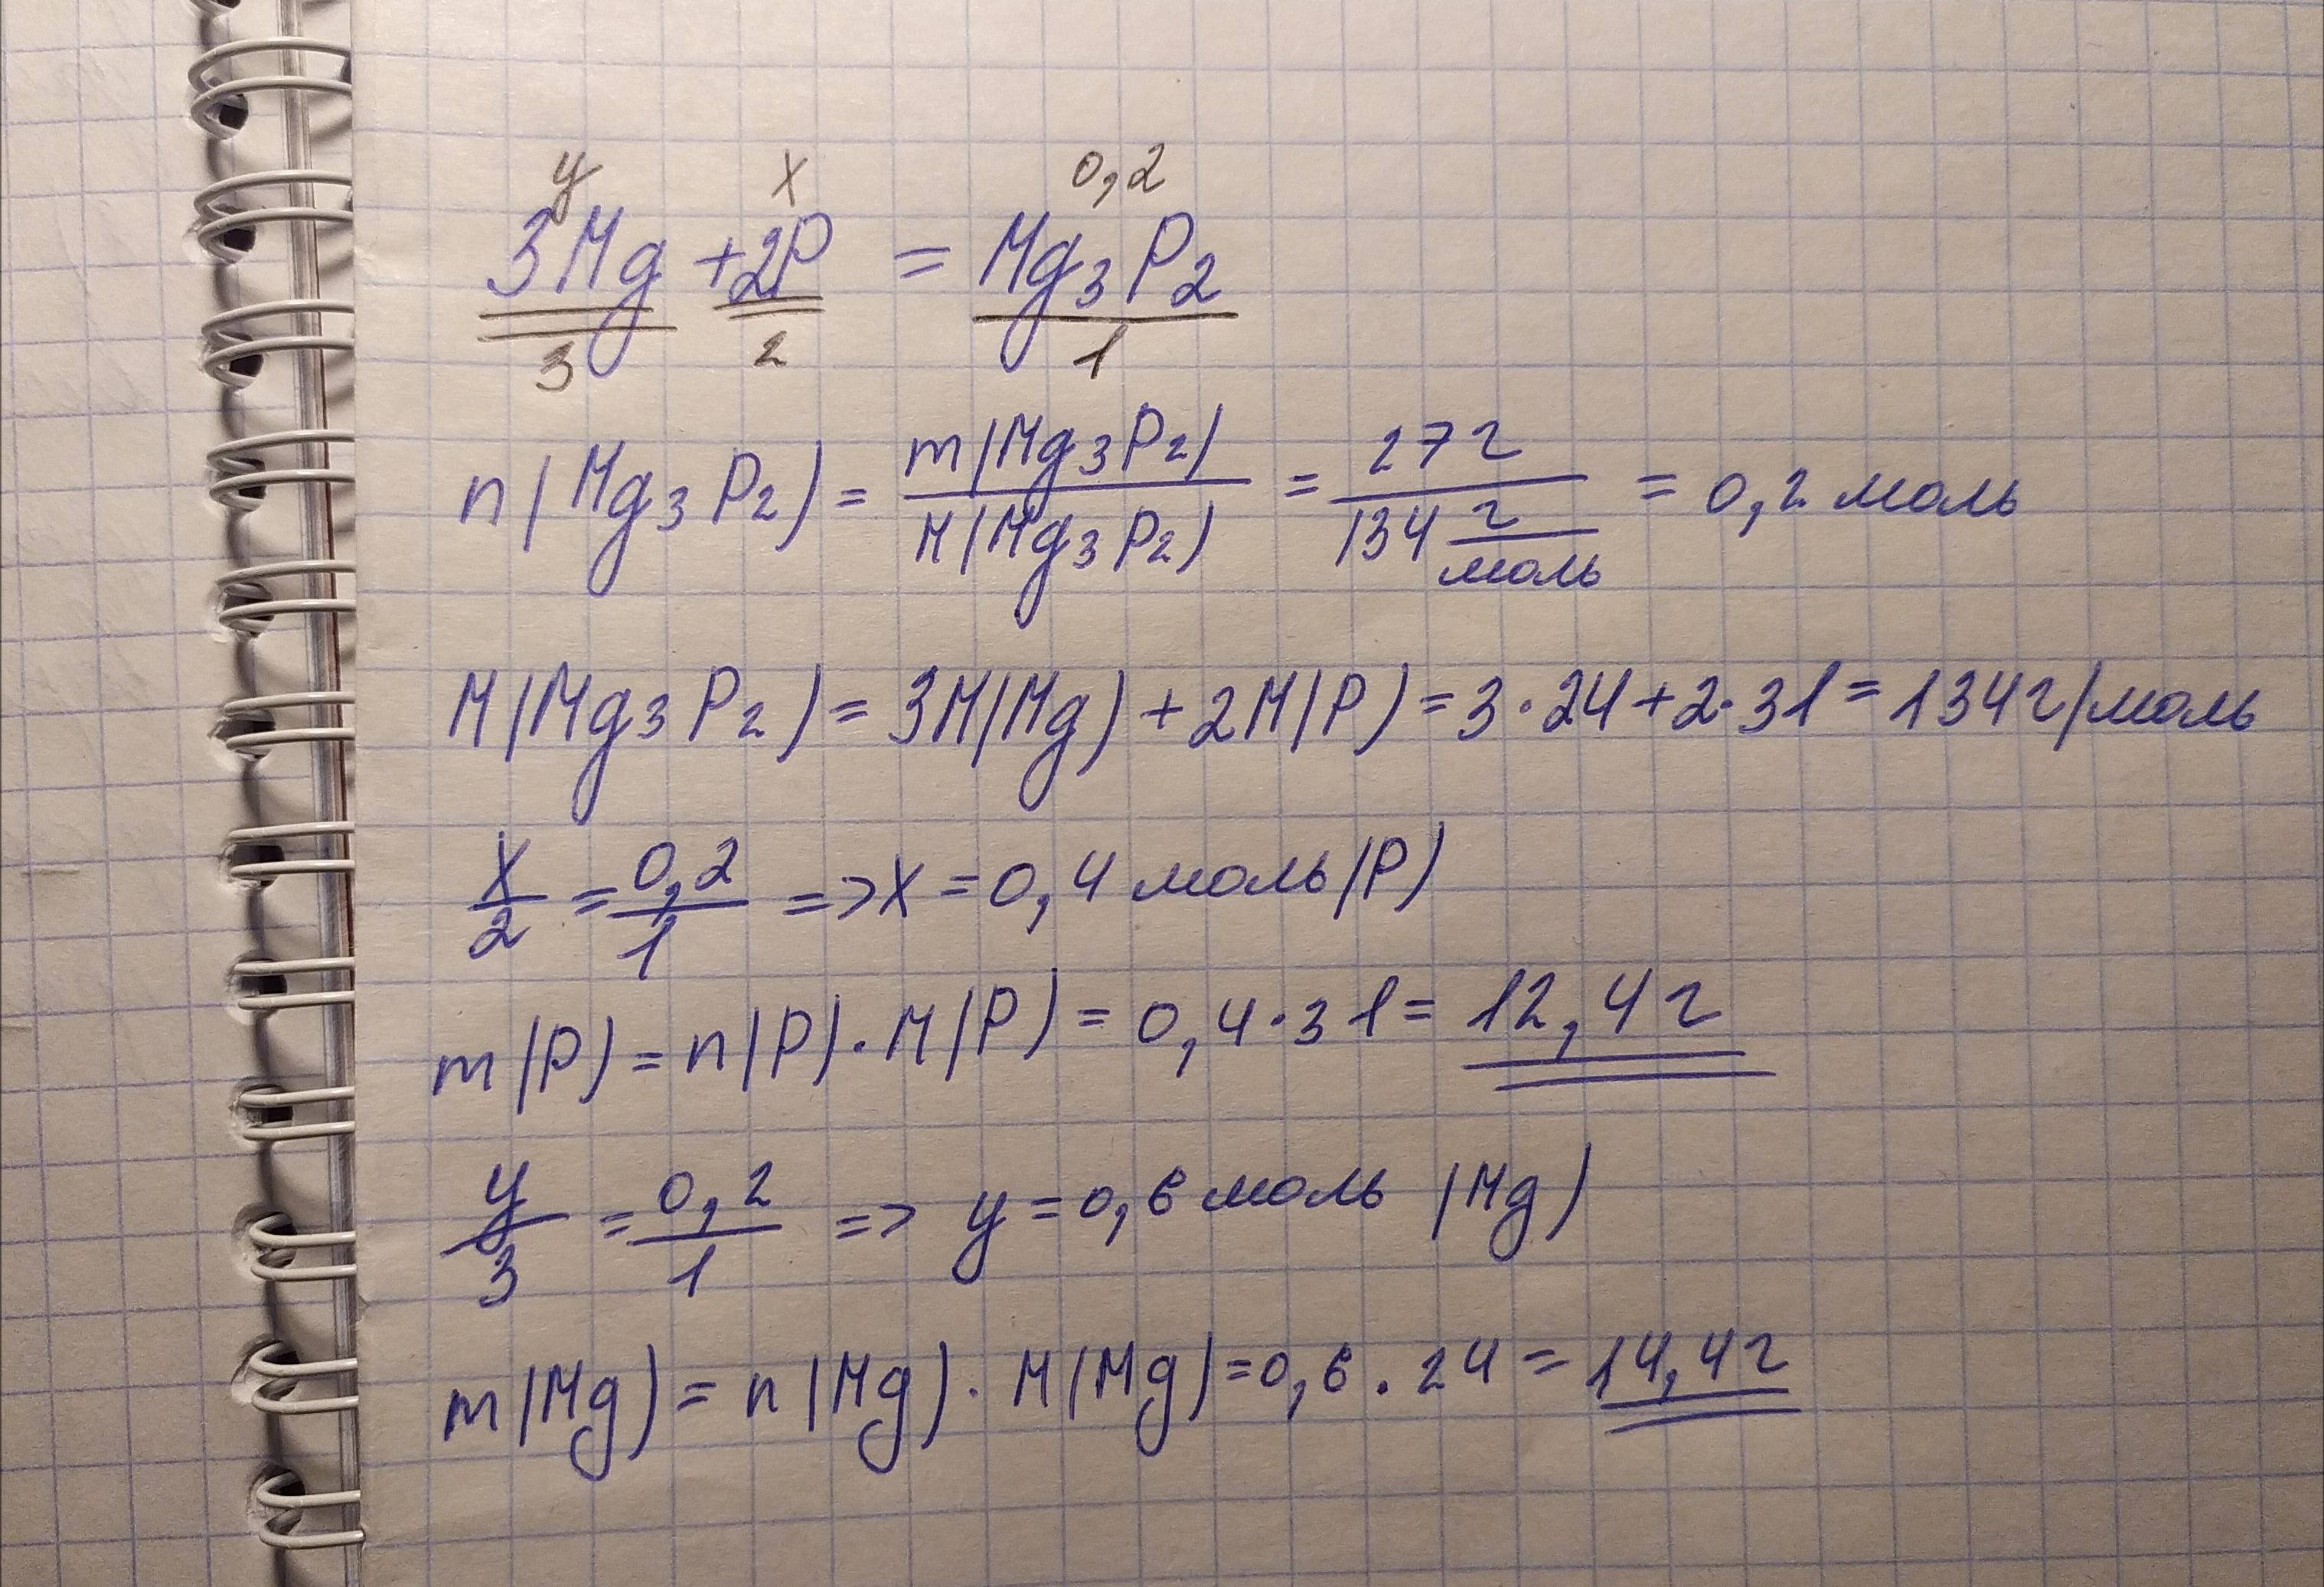 y x 0,2
3Mg + 2P = Mg₃P₂
3 2 1
n(Mg₃P₂) = m(Mg₃P₂) / M(Mg₃P₂) = 27 г / 134 г/моль = 0,2 моль
M(Mg₃P₂) = 3M(Mg) + 2M(P) = 3·24 + 2·31 = 134 г/моль
x/2 = 0,2/1 => x = 0,4 моль (P)
m(P) = n(P)·M(P) = 0,4·31 = 12,4 г
y/3 = 0,2/1 => y = 0,6 моль (Mg)
m(Mg) = n(Mg)·M(Mg) = 0,6·24 = 14,4 г